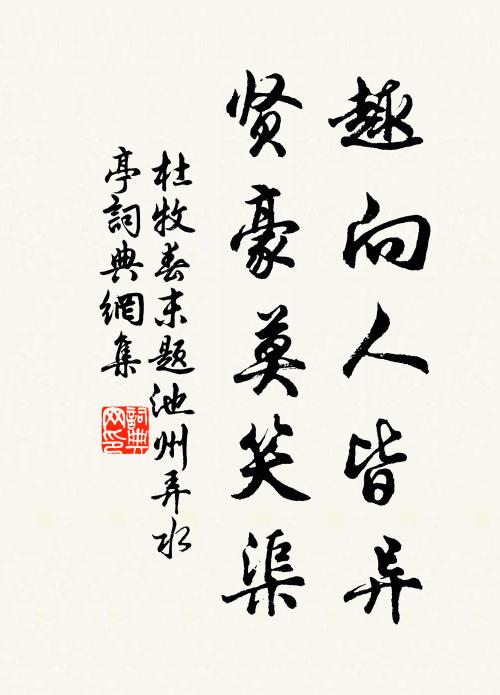 趣向人皆异
贤豪莫笑渠
杜牧春末题池州弄水
亭詞典網集
詞典
网印